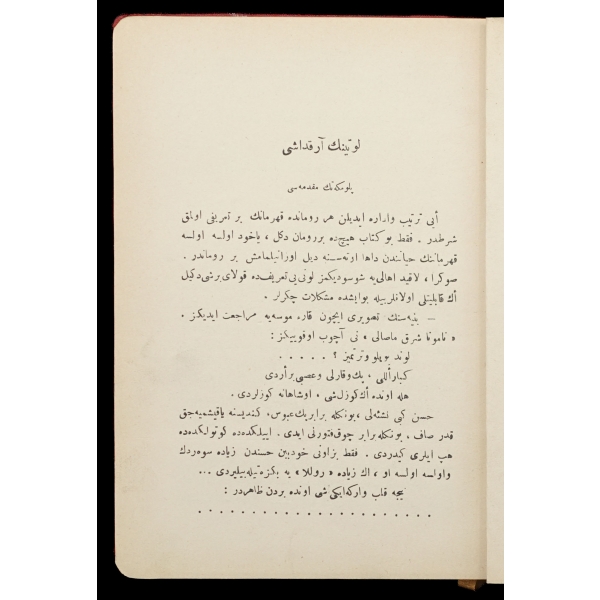 لوتینك آرقداشی
یلوتكەنك مقدمەسی
أیی ترتیب واداره ایدیلن هر رومانده قهرمانك بر تعریفی اولمق
شرطدر . فقط بو كتاب هیچده بررومان دكل ، یاخود اولسه اولسه
قهرماننك حیاتندن داها اوته‌سنه دیل اوزاتیلمامش بر رومانندر .
صوكرا ، لاقید اهالی‌یه شوسودیكمز لوتی‌یی تعریف‌ده قولای برشی‌دكیل
أك قابلیتلی اولانلر بیله بوایشده مشكلات چكرلر .
— بنیه‌سنك تصویری ایچون قاره موسه‌یه مراجعت ایدیكز .
« نامونا شرق ماصالی » نی آچوب اوقوییكز :
لوند بویلو وتر تمیز ؟ . . . . .
كبار أللی ، پك وقارلی وعصبی برأردی
هله اونده أك كوزل شی ، اوشاهانه كوزلردی .
حسن كبی نشئه‌لی ، بونكله برابر پك عبوس، كندیسنه یاقیشمیه‌جق
قدر صاف . بونكله برابر چوق فتورنی ایدی . اییلكده‌ده كوتولكده‌ده
هپ ایلری كیدردی . فقط بزاونی خودبین حسندن زیاده سوه‌ردك
واولسه اولسه او ، اك زیاده « روللا » یه بكزه‌تیله‌بیلیردی ...
نیجه قلب واركه‌ایكی شی اونده بردن ظاهردر :
. . . . . . . . . . . . . . . . . . . .